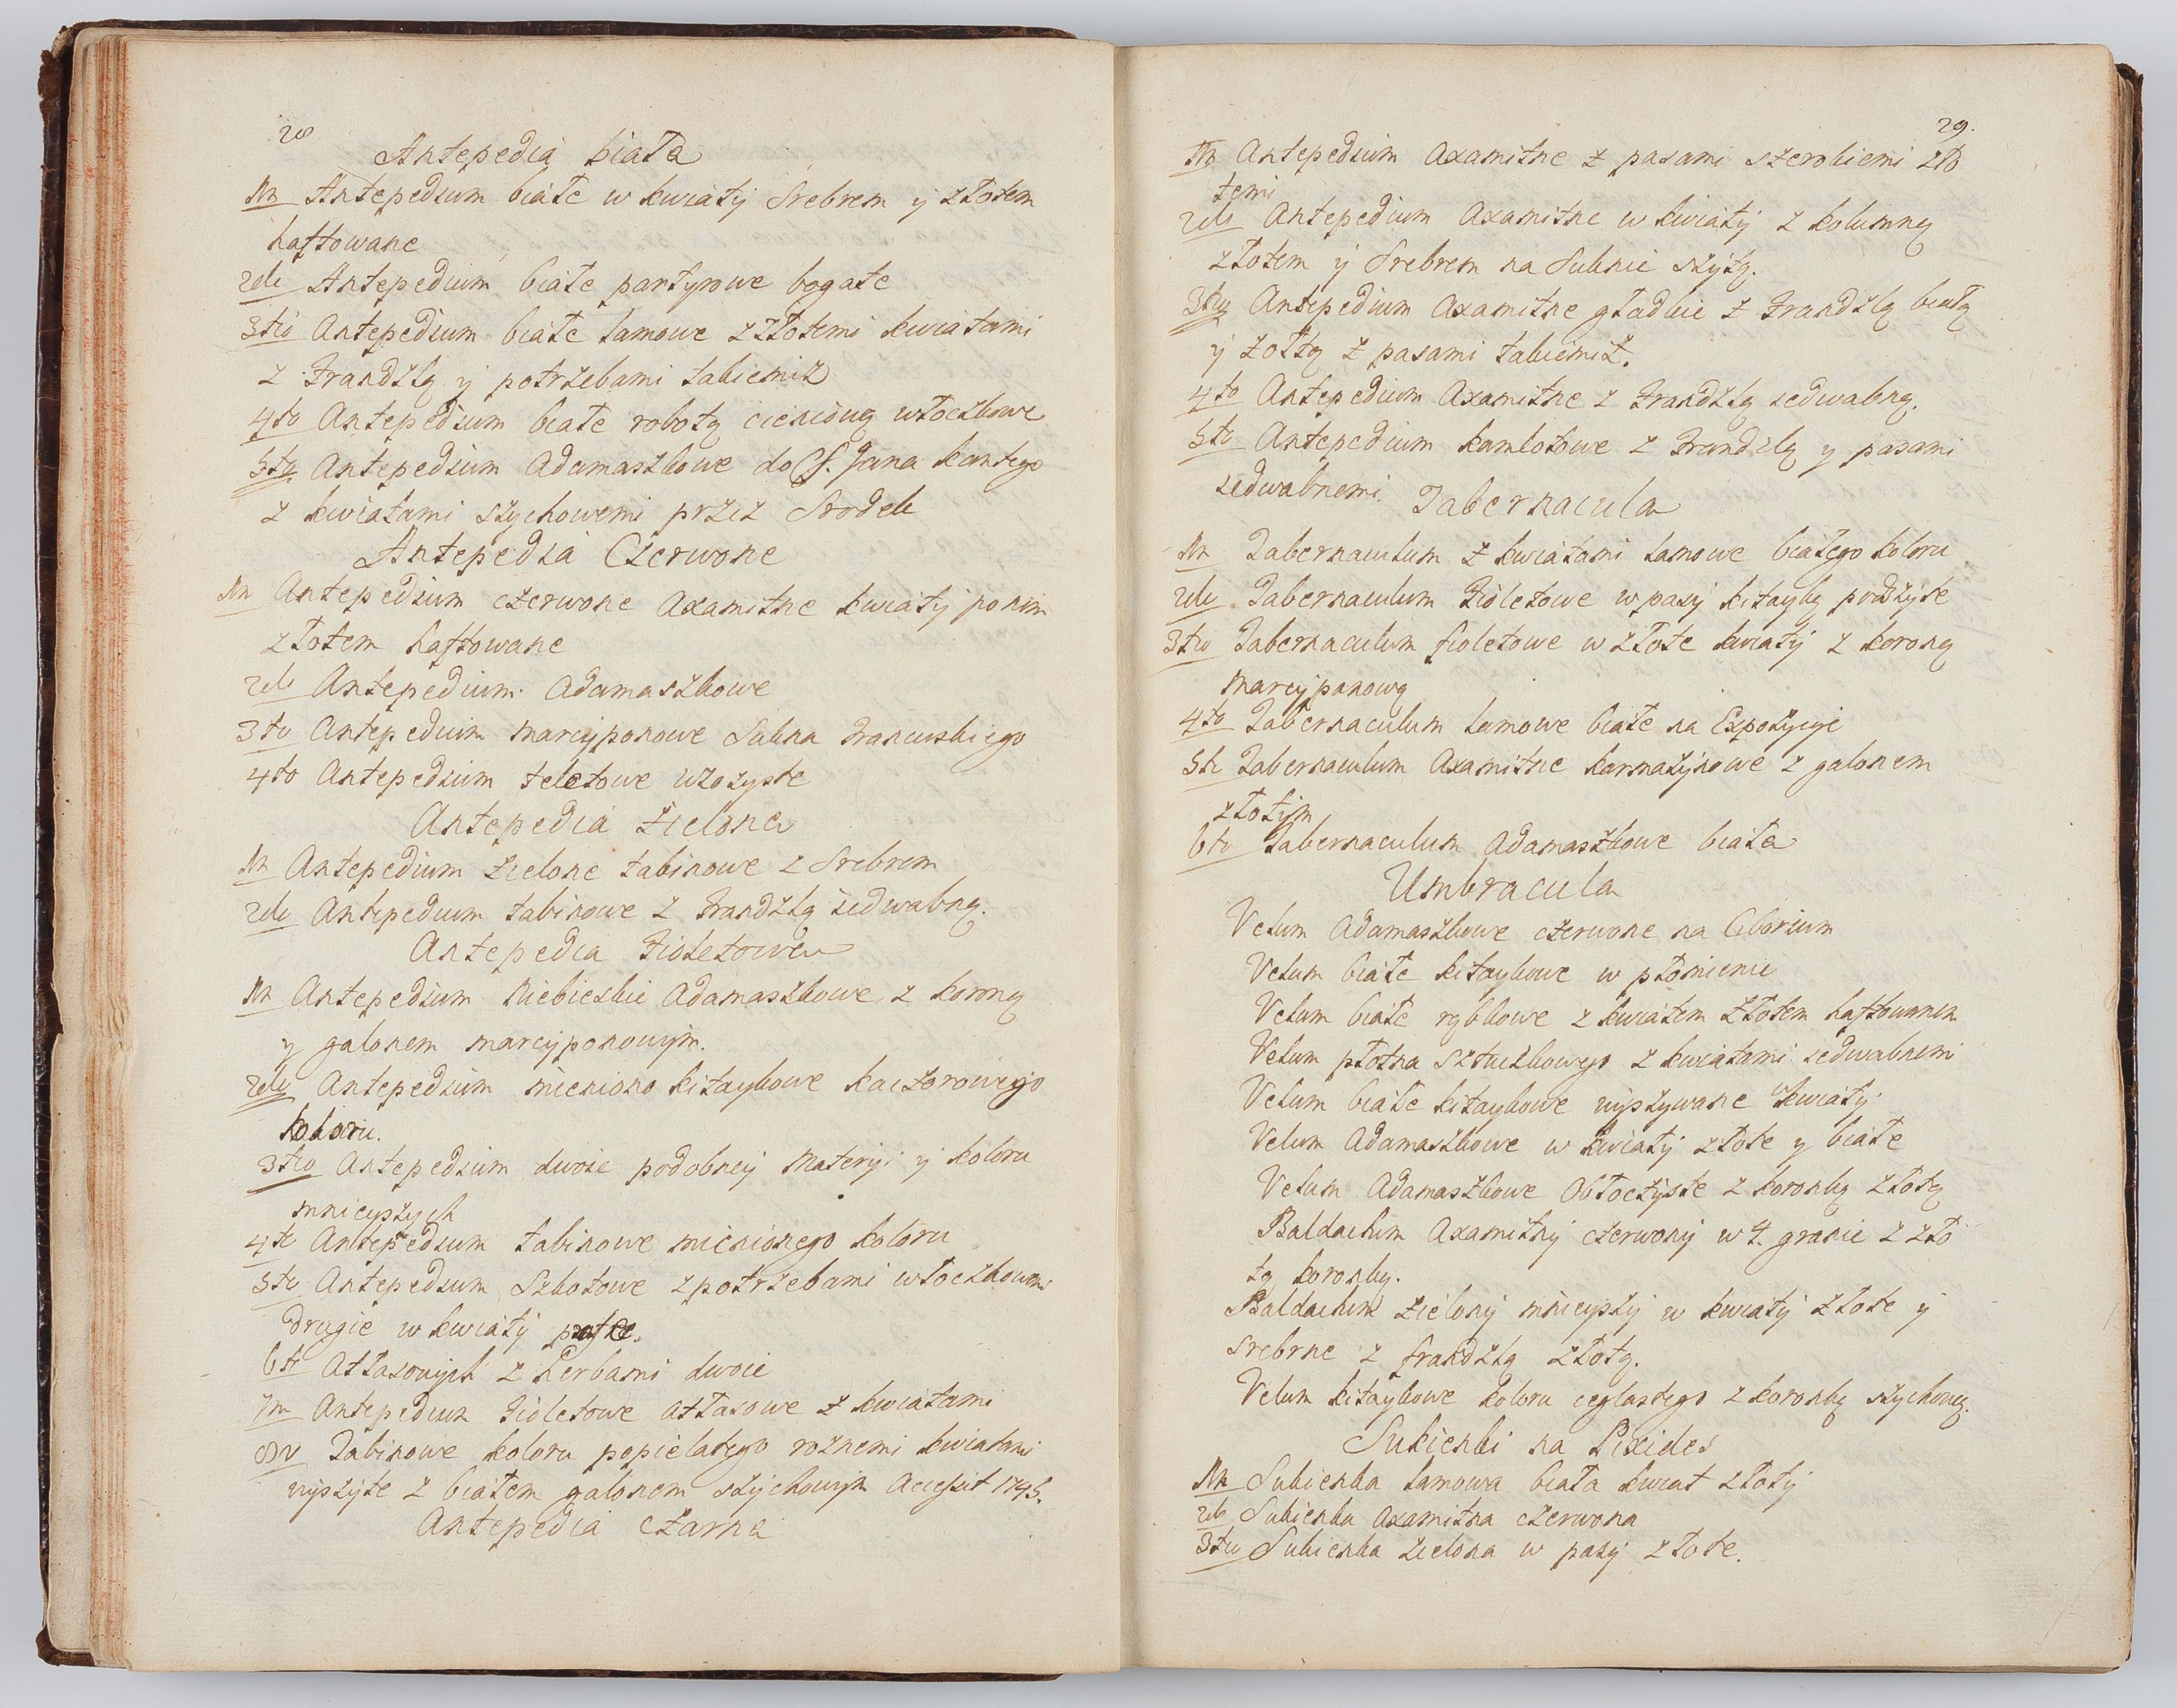 28
Antepedia biała
1m Antepedium białe w kwiaty Srebrem y złotem
haftowane
2do Antepedium białe partyrowe bogate
3tio Antepedium białe lamowe z złotemi kwiatami
z Frandzlą y potrzebami takiemiż
4to Antepedium białe robotą cienioną włoczkowe
5to Antepedium Adamaszkowe do S. Jana Kantego
z kwiatami szychowemi przez Srodek
Antepedia Czerwone
1m Antepedium czerwone Axamitne kwiaty po nim
złotem haftowane
2do Antepedium Adamaszkowe
3tio Antepedium marcyponowe Sukna Francuskiego
4to Antepedium teletowe wzozyste
Antepedia Zielone
1m Antepedium Zielone tabinowe z Srebrem
2do Antepedium tabinowe z Frandzlą iedwabną.
Antepedia Fioletowe
1m Antepedium Niebieskie Adamaszkowe z koroną
y galonem marcyponowym.
2do Antepedium mieniono kitaykowe kaczorowego
koloru.
3tio Antepedium dwoie podobney Materyi y koloru
mnieyszych
4to Antepedium tabinowe mienionego koloru
5to Antepedium Szkotowe z potrzebami włoczkowemi
drugie w kwiaty
6to Attasowych z Herbami dwoie
7m Antepedium Fioletowe attasowe z kwiatami
8v Tabinowe koloru popielatego roznemi kwiatami
wyszyte z białem galonem szychowym Accessit 1795.
Antepedia czarne
29.
1m Antepedium Axamitne z pasami szerokiemi zło
temi
2do Antepedium Axamitne w kwiaty z kolumną
złotem y Srebrem na Suknie szytą.
3tio Antepedium Axamitne gładkie z Frandzlą białą
y żołtą z pasami takiemiż.
4to Antepedium Axamitne z Frandzlą iedwabną.
5to Antepedium kamlotowe z Frandzlą y pasami
iedwabnemi.
Tabernacula
1m Tabernaculum z kwiatami lamowe białego koloru
2do Tabernaculum Fioletowe w pasy kitayką podszyte
3tio Tabernaculum fioletowe w złote kwiaty z koroną
Marcyponową
4to Tabernaculum lamowe białe na Expozycyi
5to Tabernaculum Axamitne karmazynowe z galonem
złotym
6to Tabernaculum Adamaszkowe białe
Umbracula
Velum Adamaszkowe czerwone na Ciborium
Velum białe kitaykowe w płomienie
Velum białe rybkowe z kwiatem złotem haftowanem
Velum płotna Sztuczkowego z kwiatami iedwabnemi
Velum białe kitaykowe wyszywane w kwiaty
Velum Adamaszkowe w kwiaty złote y białe
Velum Adamaszkowe Obłoczyste z koronką złotą
Baldachim Axamitny czerwony w 4. granie z zło
tą koronką.
Baldachim zielony mnieyszy w kwiaty złote y
srebrne z frandzlą złotą.
Velum kitaykowe koloru ceglastego z koronką szychową.
Sukienki na Pixides
1m Sukienka lamowa biała kwiat złoty
2do Sukienka Axamitna czerwona
3tio Sukienka zielona w pasy złote.